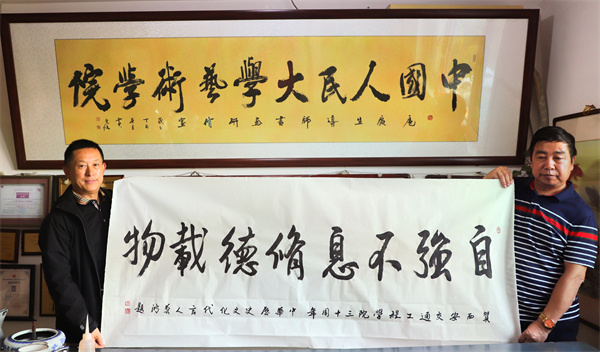 中國人民大學藝術學院
廣生導師書畫研修室
自強不息脩德載物
賀西安交通工程學院三十周年中華歷史文化代言人題